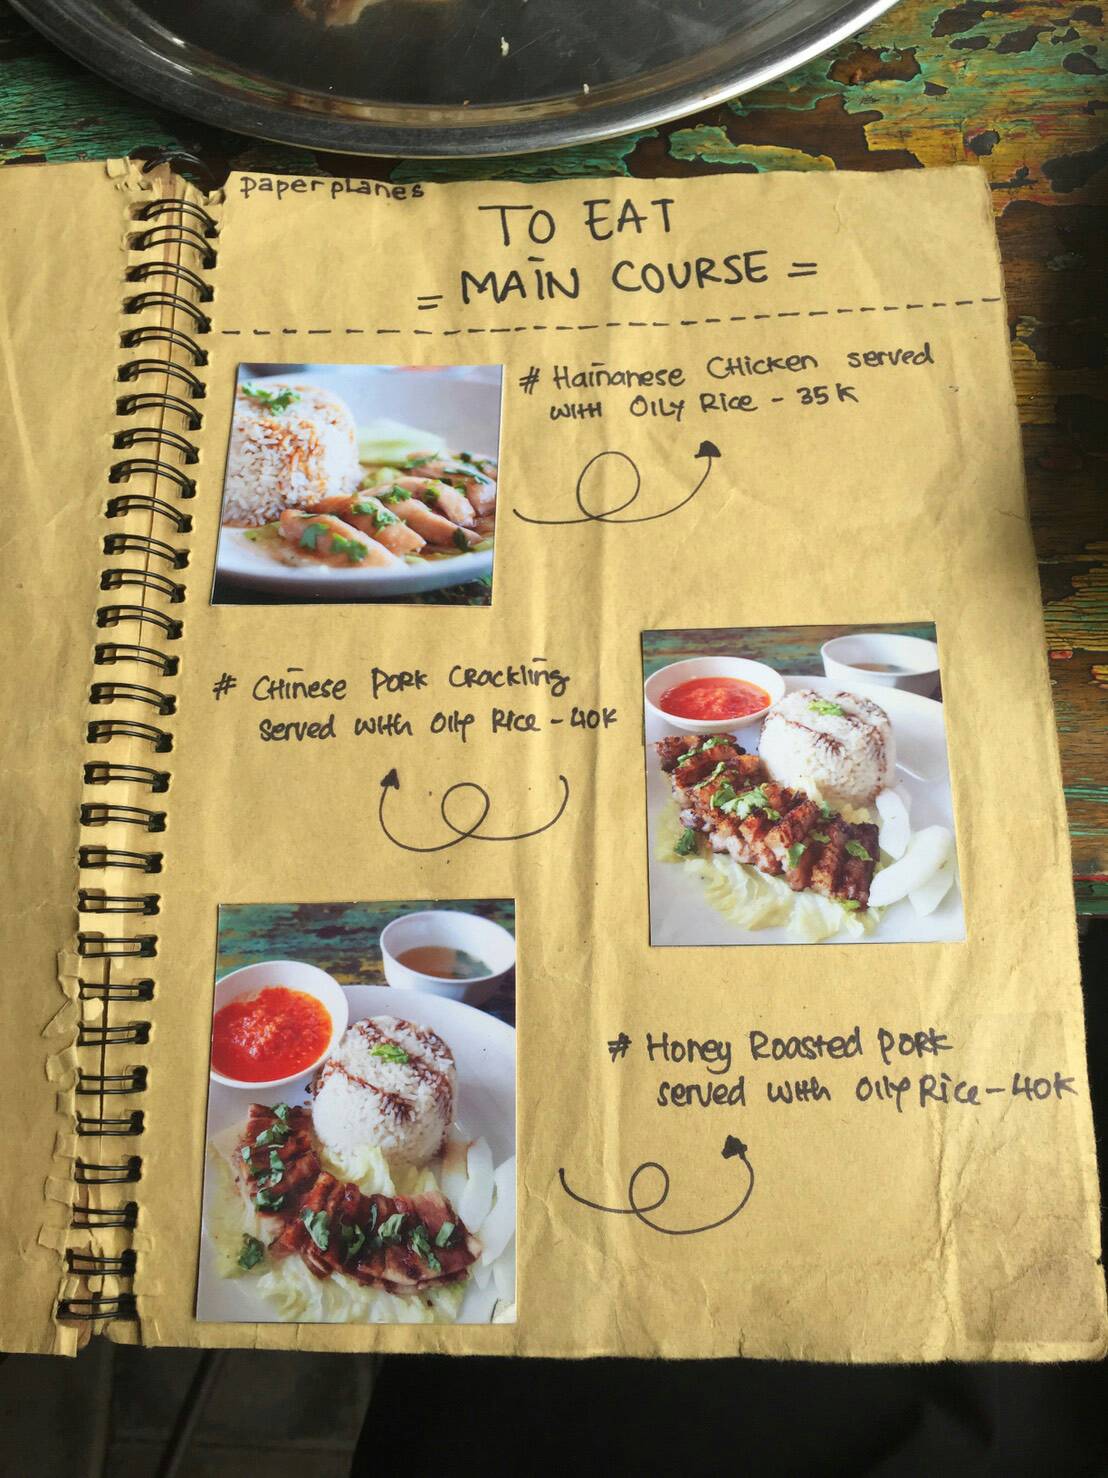 paper planes
TO EAT
= MAIN COURSE =
# Hainanese Chicken served
with Oily Rice - 35K
# Chinese Pork Crackling
served with Oily Rice - 40K
# Honey Roasted Pork
served with Oily Rice - 40K